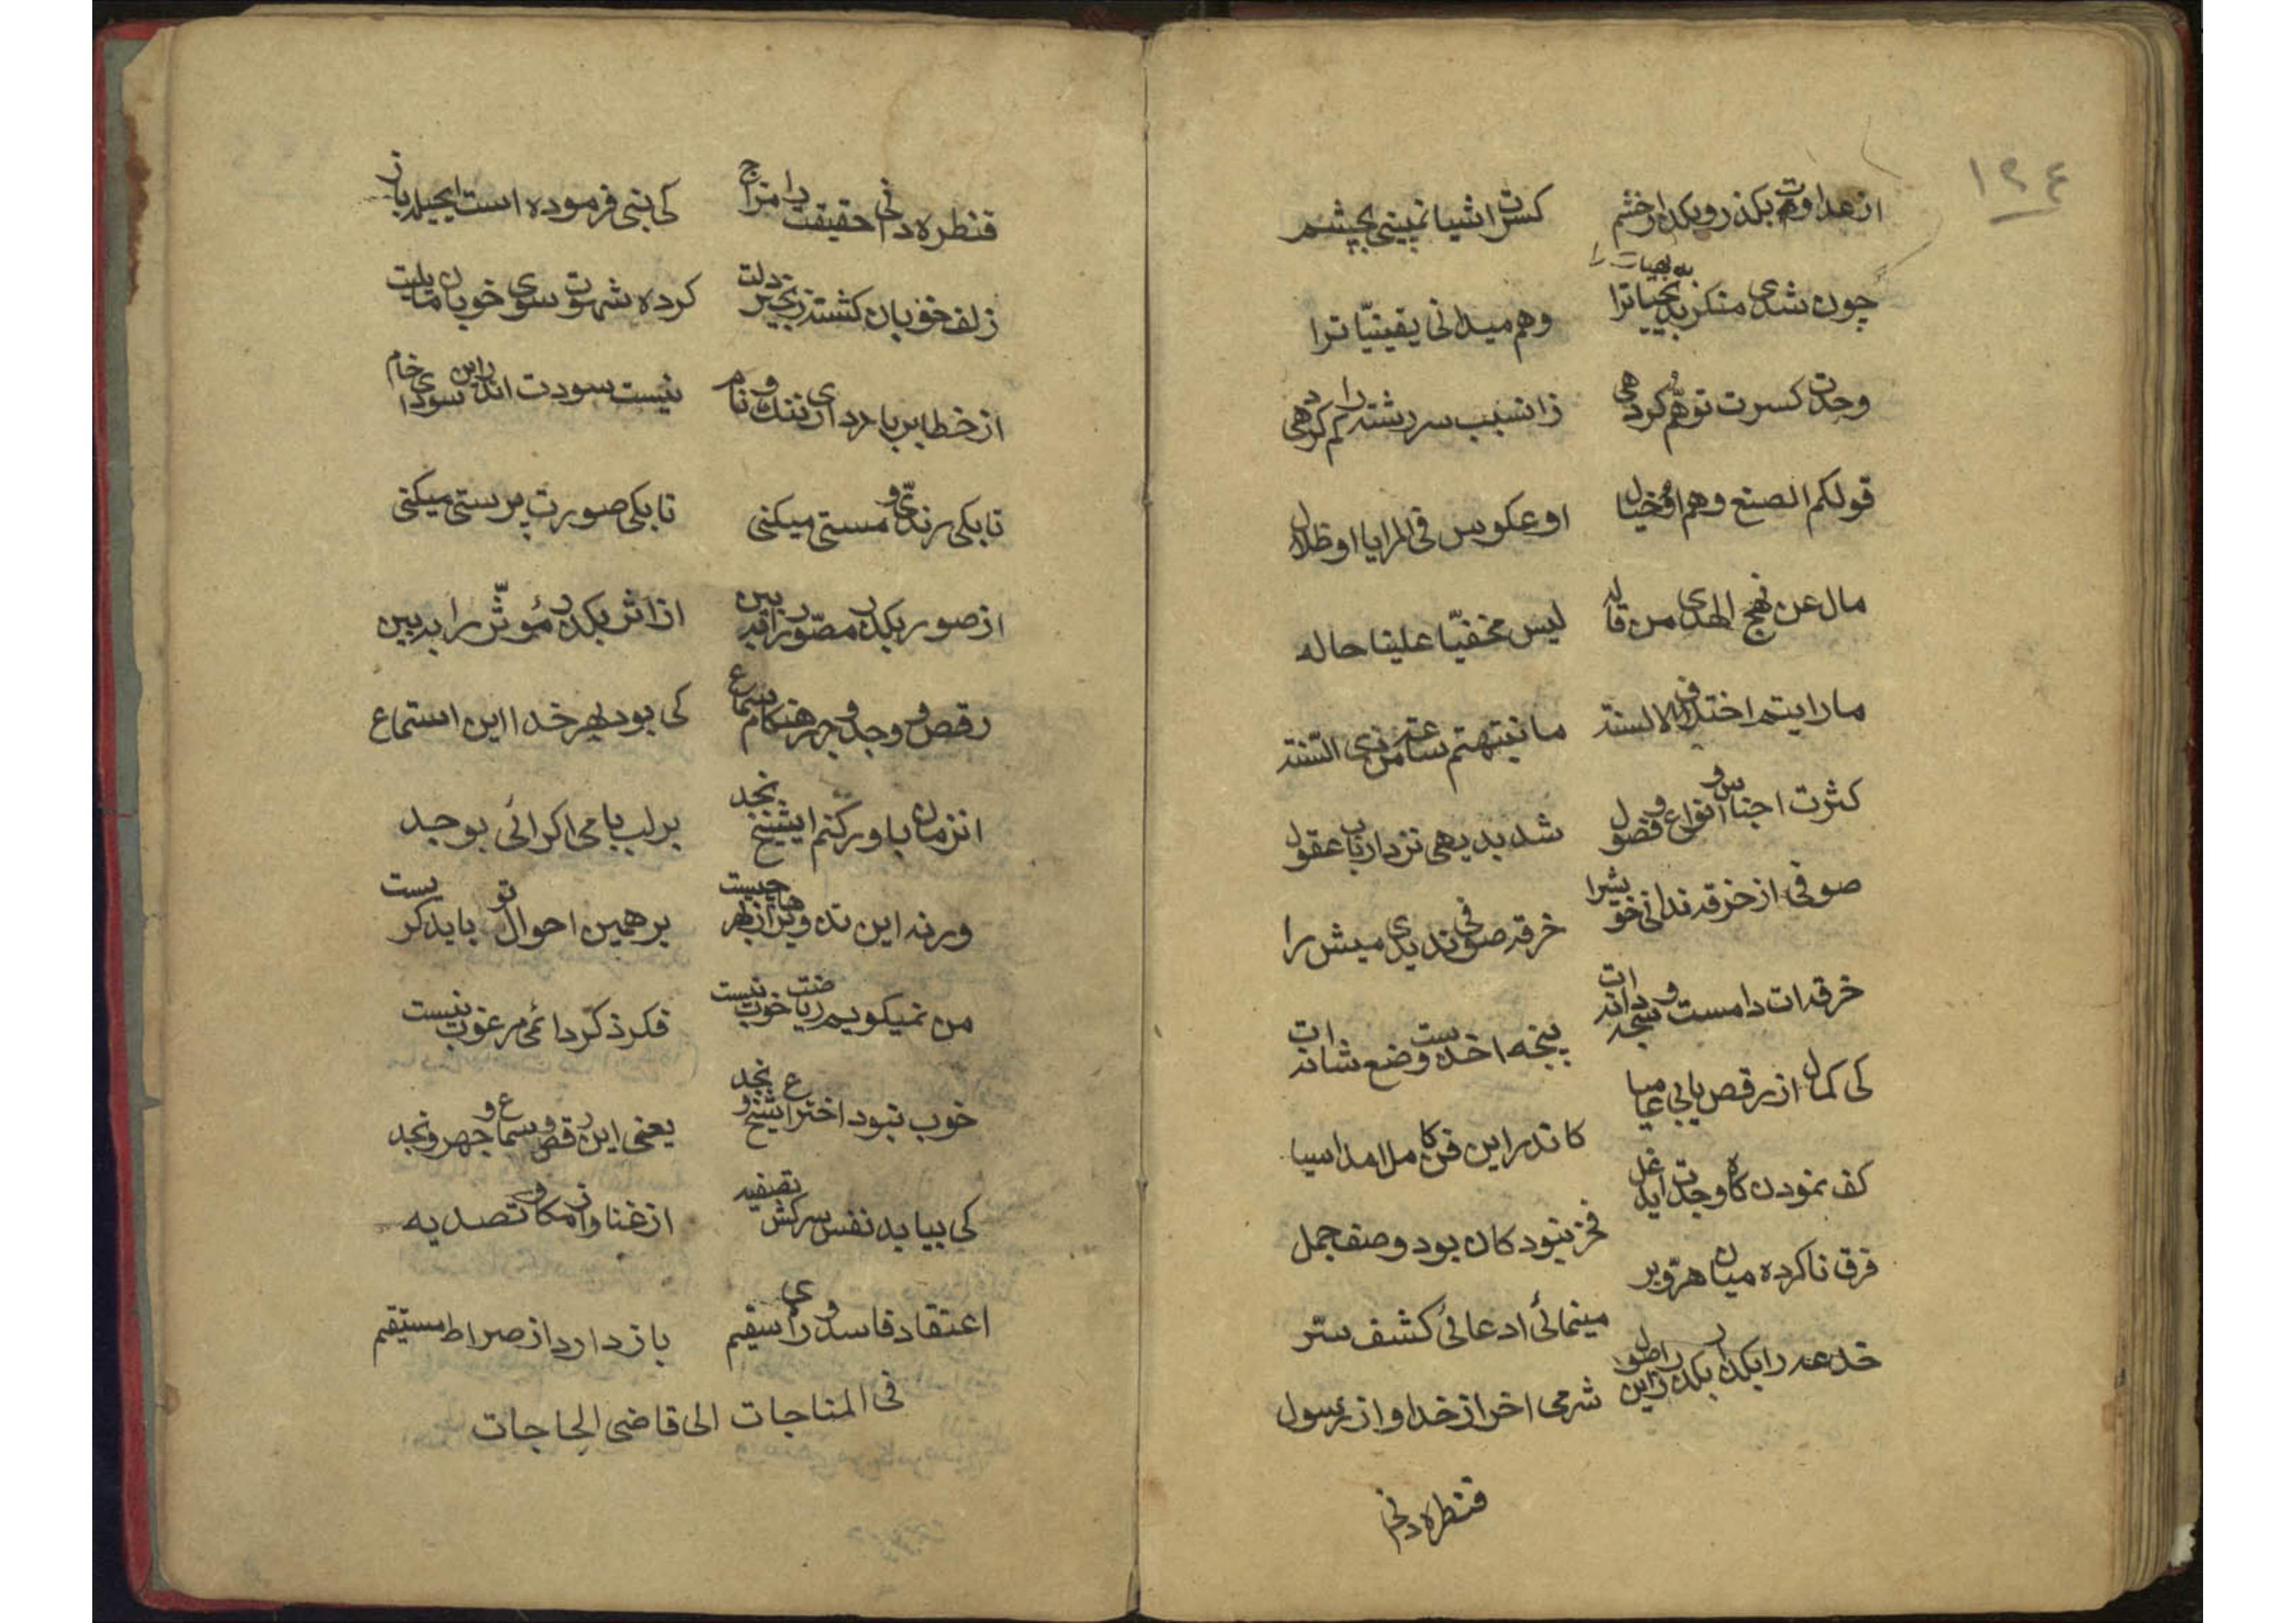 ١٢٤
از عداوت بکذر و بکذار خشم کسرت اشیا نمیبینی بچشم
به بدیهیات را
چون شدی منکر بدیهیاترا وهم میدانی یقینیّاترا
وحدت کسرت توهّم کردهی زانسبب سررشته را کم کردهی
قولکم الصنع وهم او خیال او عکوس فی المرایا او ظلال
مال عن نهج الهدی من قاله لیس مخفیّا علینا حاله
مارایتم اختلاف الالسنة مانتبهتم ساعة من ذی السّنة
کثرت اجناس و انواع و فضول شد بدیهی نزد ارباب عقول
صوفی از خرقه ندانی خویشرا خرقه صوفی ندیدی میش را
خرقه‌ات دامست و سبحه دانه‌ات پنجه اخذست وضع شانه‌ات
کی کمال از رقص یابی عامیا کاندر این فن کامل امد اسیا
کف نمودن کاه وجدت ای دغل فخر نبود کان بود وصف جمل
فرق ناکرده میان هرّ و بر مینمائی ادعائی کشف ستر
خدعه را بکذار بکذر زاین اصول شرمی اخر از خدا و از رسول
قنطره دانی
قنطره دانی حقیقت را مزاج کی نبی فرموده است ایحیله باز
زلف خوبان کشته زنجیر دلت کرده شهوت سوی خوبان مایلت
از خطا بر باد داری ننک و نام نیست سودت اندر این سودای خام
تا بکی رندیّ و مستی میکنی تا بکی صورت پرستی میکنی
از صور بکذر مصّور را ببین از اثر بکذر مؤثّر را ببین
رقص و وجد و جهر هنکام سماع کی بود بهر خدا این استماع
انزمان باور کنم ایشیخ نجد بر لب بامی اکر ائی بوجد
ورنه این تدویرها از بهر چیست بر همین احوال تو باید کریست
من نمیکویم ریاضت خوب نیست فکر ذکر دائمی مرغوب نیست
خوب نبود اختراع شیخ نجد یعنی این رقص و سماع و جهر و نجد
کی بیابد نفس سرکش تصفیه از غنا و از مکا و تصدیه
اعتقاد فاسد و رای سقیم باز دارد از صراط مستقیم
فی المناجات الی قاضی الحاجات